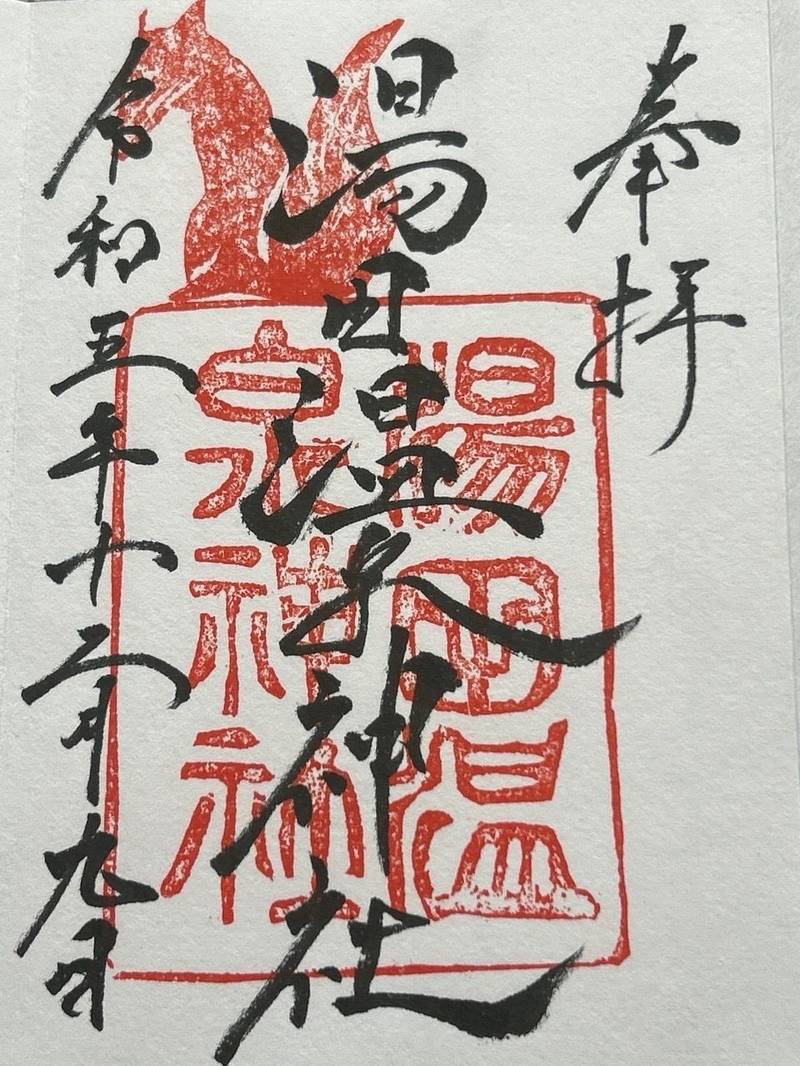 奉拝
湯田温泉神社
令和五年十二月九日
湯田温
泉神社